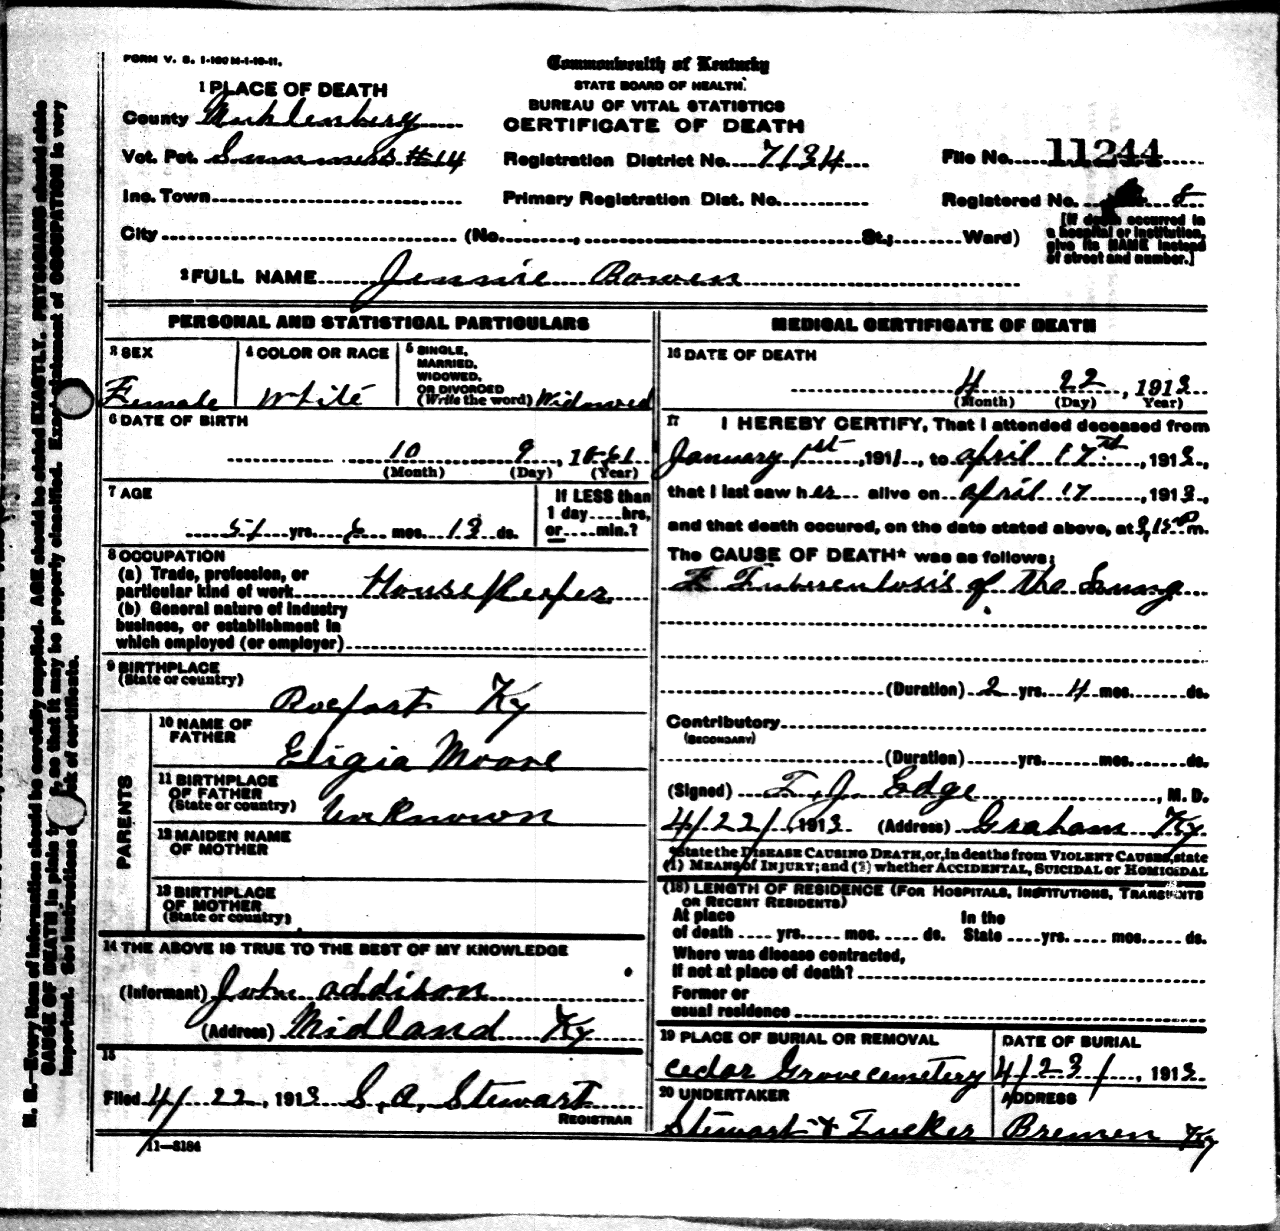 FORM V. S. 1-100M-1-10-11.
Commonwealth of Kentucky
STATE BOARD OF HEALTH.
BUREAU OF VITAL STATISTICS
CERTIFICATE OF DEATH
1 PLACE OF DEATH
County Muhlenberg
Vot. Pct. #14
Registration District No. 7134
File No. 11244
Inc. Town
Primary Registration Dist. No.
Registered No. 8
City (No. , St.; Ward)
[If death occurred in
a hospital or institution,
give its NAME instead
of street and number.]
2 FULL NAME Jennie Bowen
PERSONAL AND STATISTICAL PARTICULARS
3 SEX
Female
4 COLOR OR RACE
White
5 SINGLE,
MARRIED,
WIDOWED,
OR DIVORCED
(Write the word) Widowed
6 DATE OF BIRTH
10 9, 1861
(Month) (Day) (Year)
7 AGE
51 yrs. 6 mos. 13 ds.
If LESS than
1 day....hrs,
or....min.?
8 OCCUPATION
(a) Trade, profession, or
particular kind of work House Keeper
(b) General nature of industry
business, or establishment in
which employed (or employer)
9 BIRTHPLACE
(State or country)
Ky
PARENTS
10 NAME OF
FATHER
Eligia Moore
11 BIRTHPLACE
OF FATHER
(State or country)
Unknown
12 MAIDEN NAME
OF MOTHER
13 BIRTHPLACE
OF MOTHER
(State or country)
14 THE ABOVE IS TRUE TO THE BEST OF MY KNOWLEDGE
(Informant) John Addison
(Address) Midland Ky
15
Filed 4/22, 1913 S. A. Stewart
REGISTRAR
11—3184
MEDICAL CERTIFICATE OF DEATH
16 DATE OF DEATH
4 22, 1913
(Month) (Day) Year)
17 I HEREBY CERTIFY, That I attended deceased from
January 1st, 1911, to april 17th, 1913,
that I last saw her alive on april 17, 1913,
and that death occured, on the date stated above, at m.
The CAUSE OF DEATH* was as follows:
Tuberculosis of the Lung
(Duration) 2 yrs. 4 mos. ds.
Contributory
(SECONDARY)
(Duration) yrs. mos. ds.
(Signed) T. J. Edge, M. D.
4/22/, 1913 (Address) Graham Ky.
*State the DISEASE CAUSING DEATH, or, in deaths from VIOLENT CAUSES, state
(1) MEANS of INJURY; and (2) whether ACCIDENTAL, SUICIDAL or HOMICIDAL
(18) LENGTH OF RESIDENCE (FOR HOSPITALS, INSTITUTIONS, TRANSIENTS
OR RECENT RESIDENTS)
At place In the
of death yrs. mos. ds. State yrs. mos. ds.
Where was disease contracted,
If not at place of death?
Former or
usual residence
19 PLACE OF BURIAL OR REMOVAL
cedar Grove cemetery
DATE OF BURIAL
4/23/, 1913
20 UNDERTAKER
Stewart & Tucker
ADDRESS
Bremen Ky
N. B.—Every item of information should be carefully supplied. AGE should be stated EXACTLY. PHYSICIANS should state
CAUSE OF DEATH in plain so that it may be properly classified. Exact statement of OCCUPATION is very
important. See instructions of certificate.